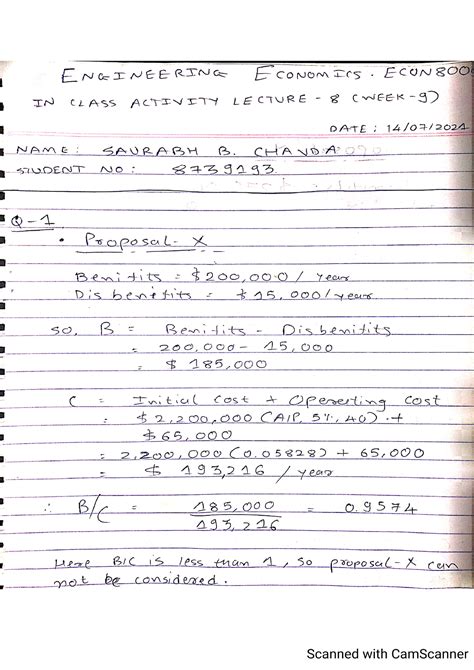 ENGINEERING ECONOMICS. ECON800
IN CLASS ACTIVITY LECTURE - 8 (WEEK-9)
DATE : 14/07/2021
NAME : SAURABH B. CHAVDA
STUDENT NO : 8739193
Q-1
• Proposal-X
Benifits = $200,000/year
Disbenefits = $15,000/year.
so, B = Benifits - Disbenifits
= 200,000 - 15,000
= $ 185,000
C = Initial cost + Operserting cost
= $2,200,000 (A/P, 5%, 40) +
$65,000
= 2,200,000 (0.05828) + 65,000
= $ 193,216 / year
∴ B/C = 185,000 / 193,216 = 0.9574
Here B/C is less than 1, so proposal-X can
not be considered.
Scanned with CamScanner